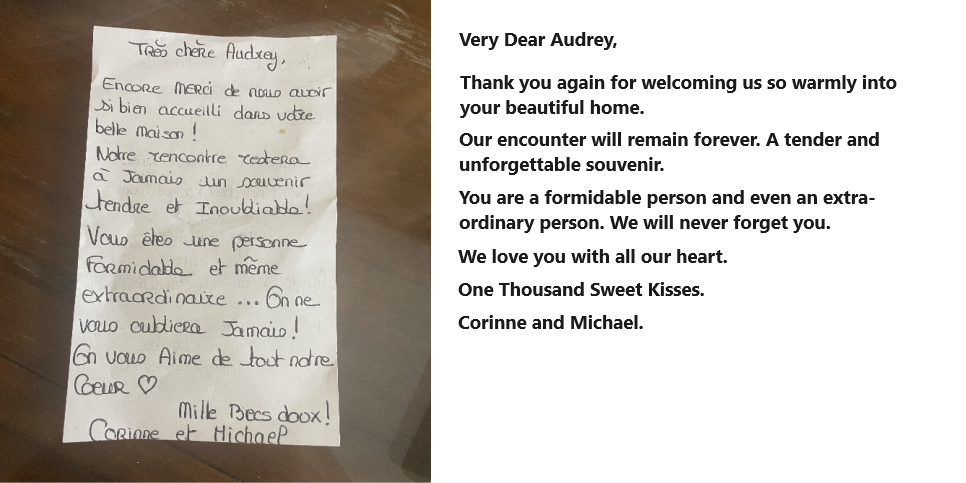 Très chère Audrey,
Encore merci de nous avoir
si bien accueilli dans votre
belle maison !
Notre rencontre restera
à Jamais un souvenir
tendre et Inoubliable !
Vous êtes une personne
Formidable et même
extraordinaire ... On ne
vous oubliera Jamais !
On vous Aime de tout notre
Coeur ♡
Mille Becs doux !
Corinne et Michael
Very Dear Audrey,
Thank you again for welcoming us so warmly into
your beautiful home.
Our encounter will remain forever. A tender and
unforgettable souvenir.
You are a formidable person and even an extra-
ordinary person. We will never forget you.
We love you with all our heart.
One Thousand Sweet Kisses.
Corinne and Michael.